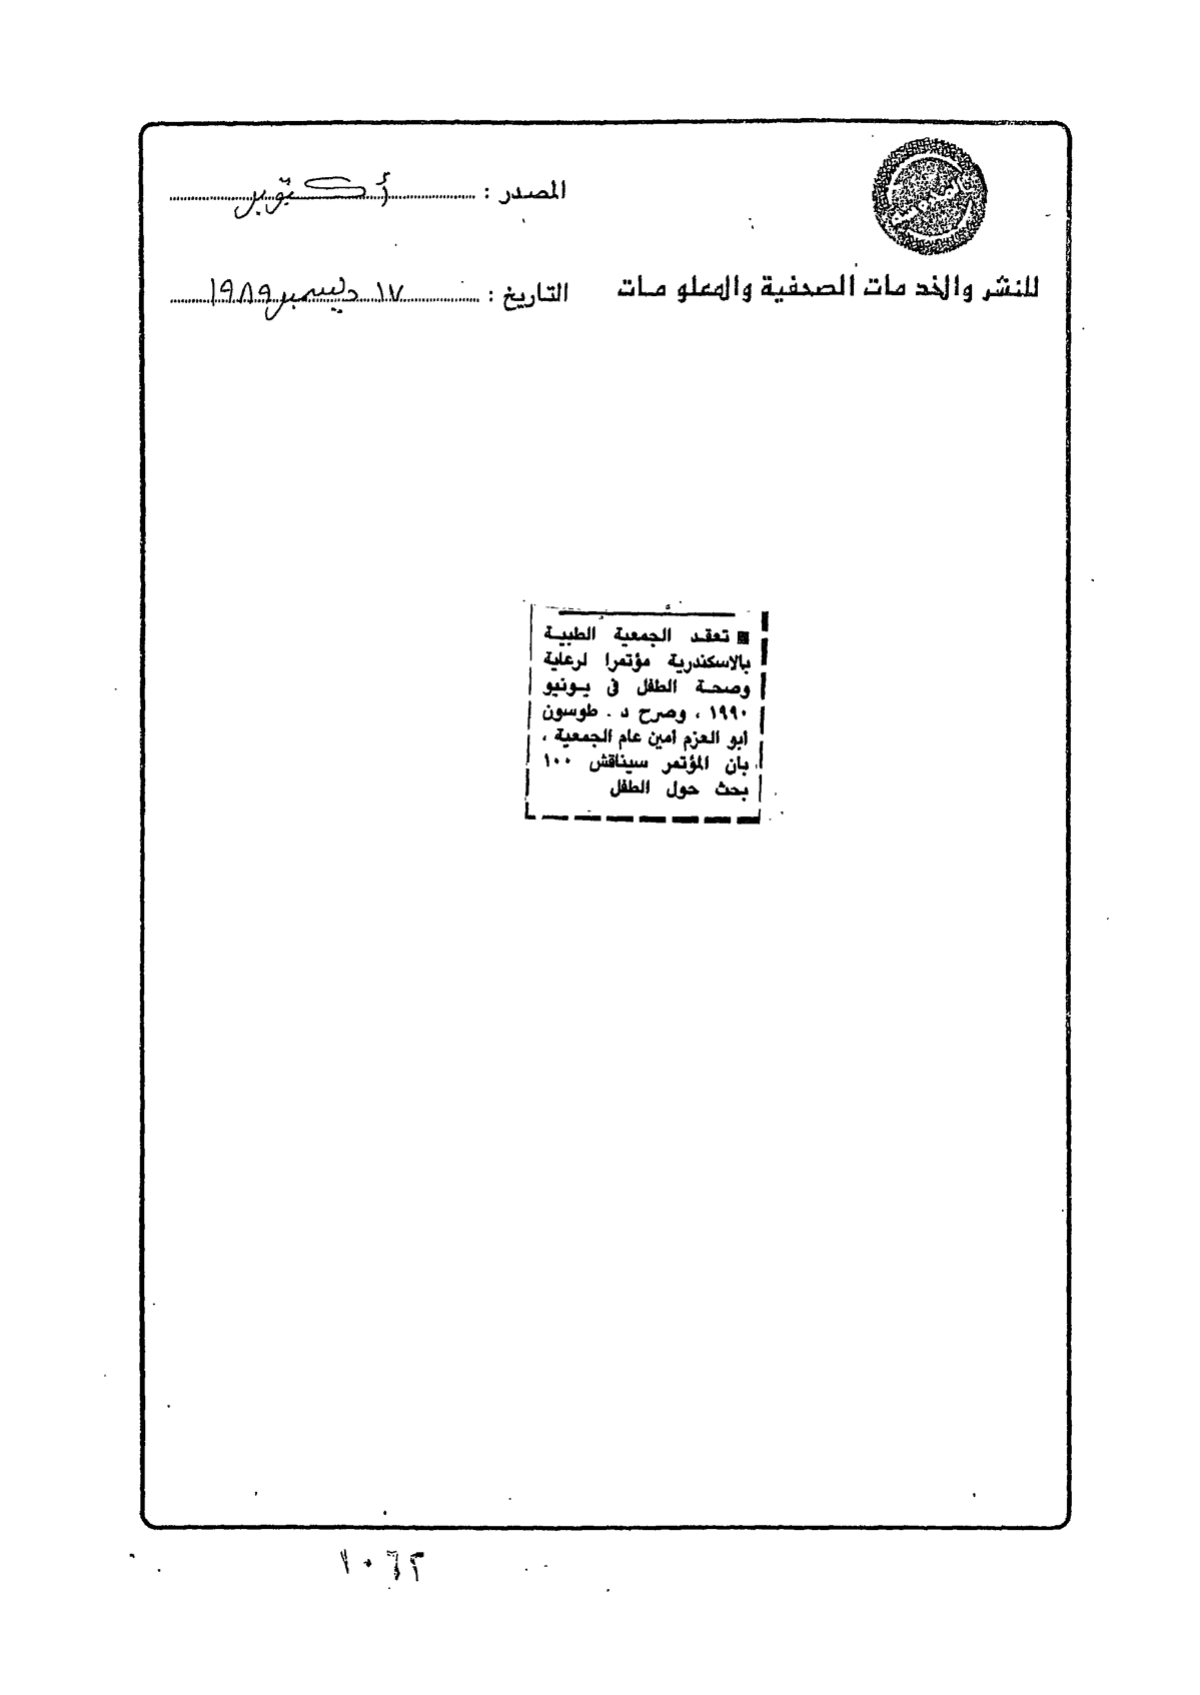 المصدر : أكتوبر
للنشر والخد مات الصحفية والمعلو مات
التاريخ : ١٧ ديسمبر ١٩٨٩
■ تعقد الجمعية الطبية
بالاسكندرية مؤتمرا لرعاية
وصحة الطفل فى يونيو
١٩٩٠ ، وصرح د . طوسون
ابو العزم امين عام الجمعية ،
بان المؤتمر سيناقش ١٠٠
بحث حول الطفل